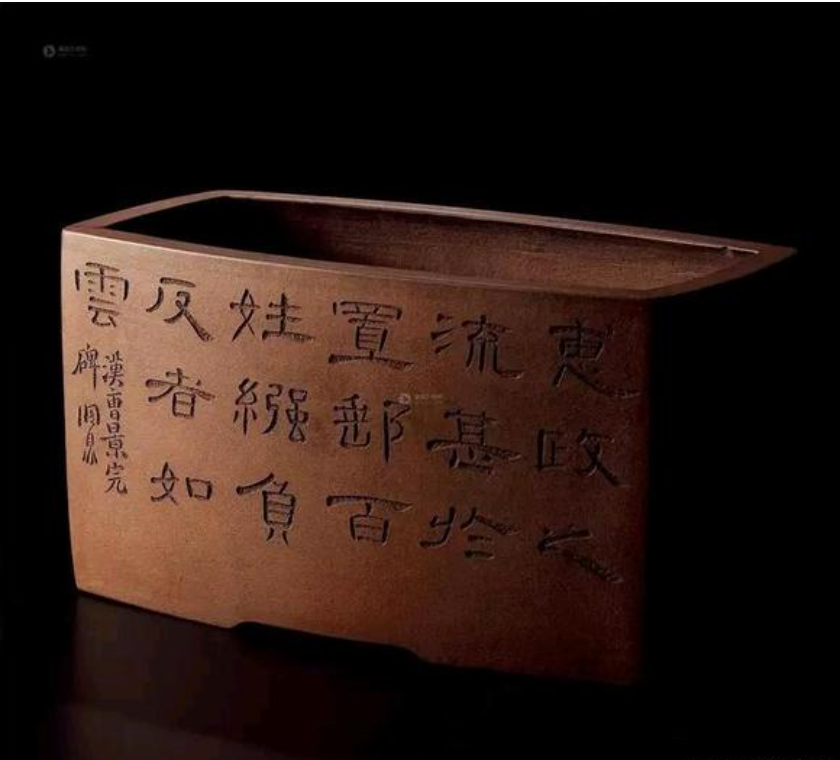 惠政之
流甚扵
置郵百
姓繦負
反者如
雲
漢曹景完
碑